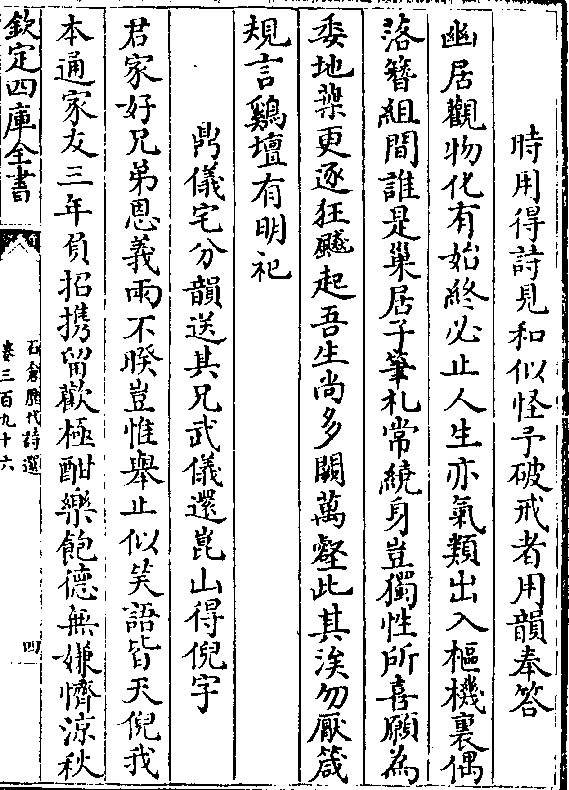 時用得詩見和似怪予破戒者用韻奉答
幽居觀物化有始終必止人生亦氣類出入樞機裏偶
落簪組間誰是巢居子筆札常繞身豈獨性所喜願為
委地葉更逐狂飈起吾生尚多闕萬壑此其涘勿厭箴
規言鷄壇有明祀
鼎儀宅分韻送其兄武儀還崑山得倪字
君家好兄弟恩義兩不睽豈惟舉止似笑語皆天倪我
本通家友三年負招携留歡極酣樂飽德無嫌懠涼秋
欽定四庫全書
石倉歷代詩選
卷三百九十六
四